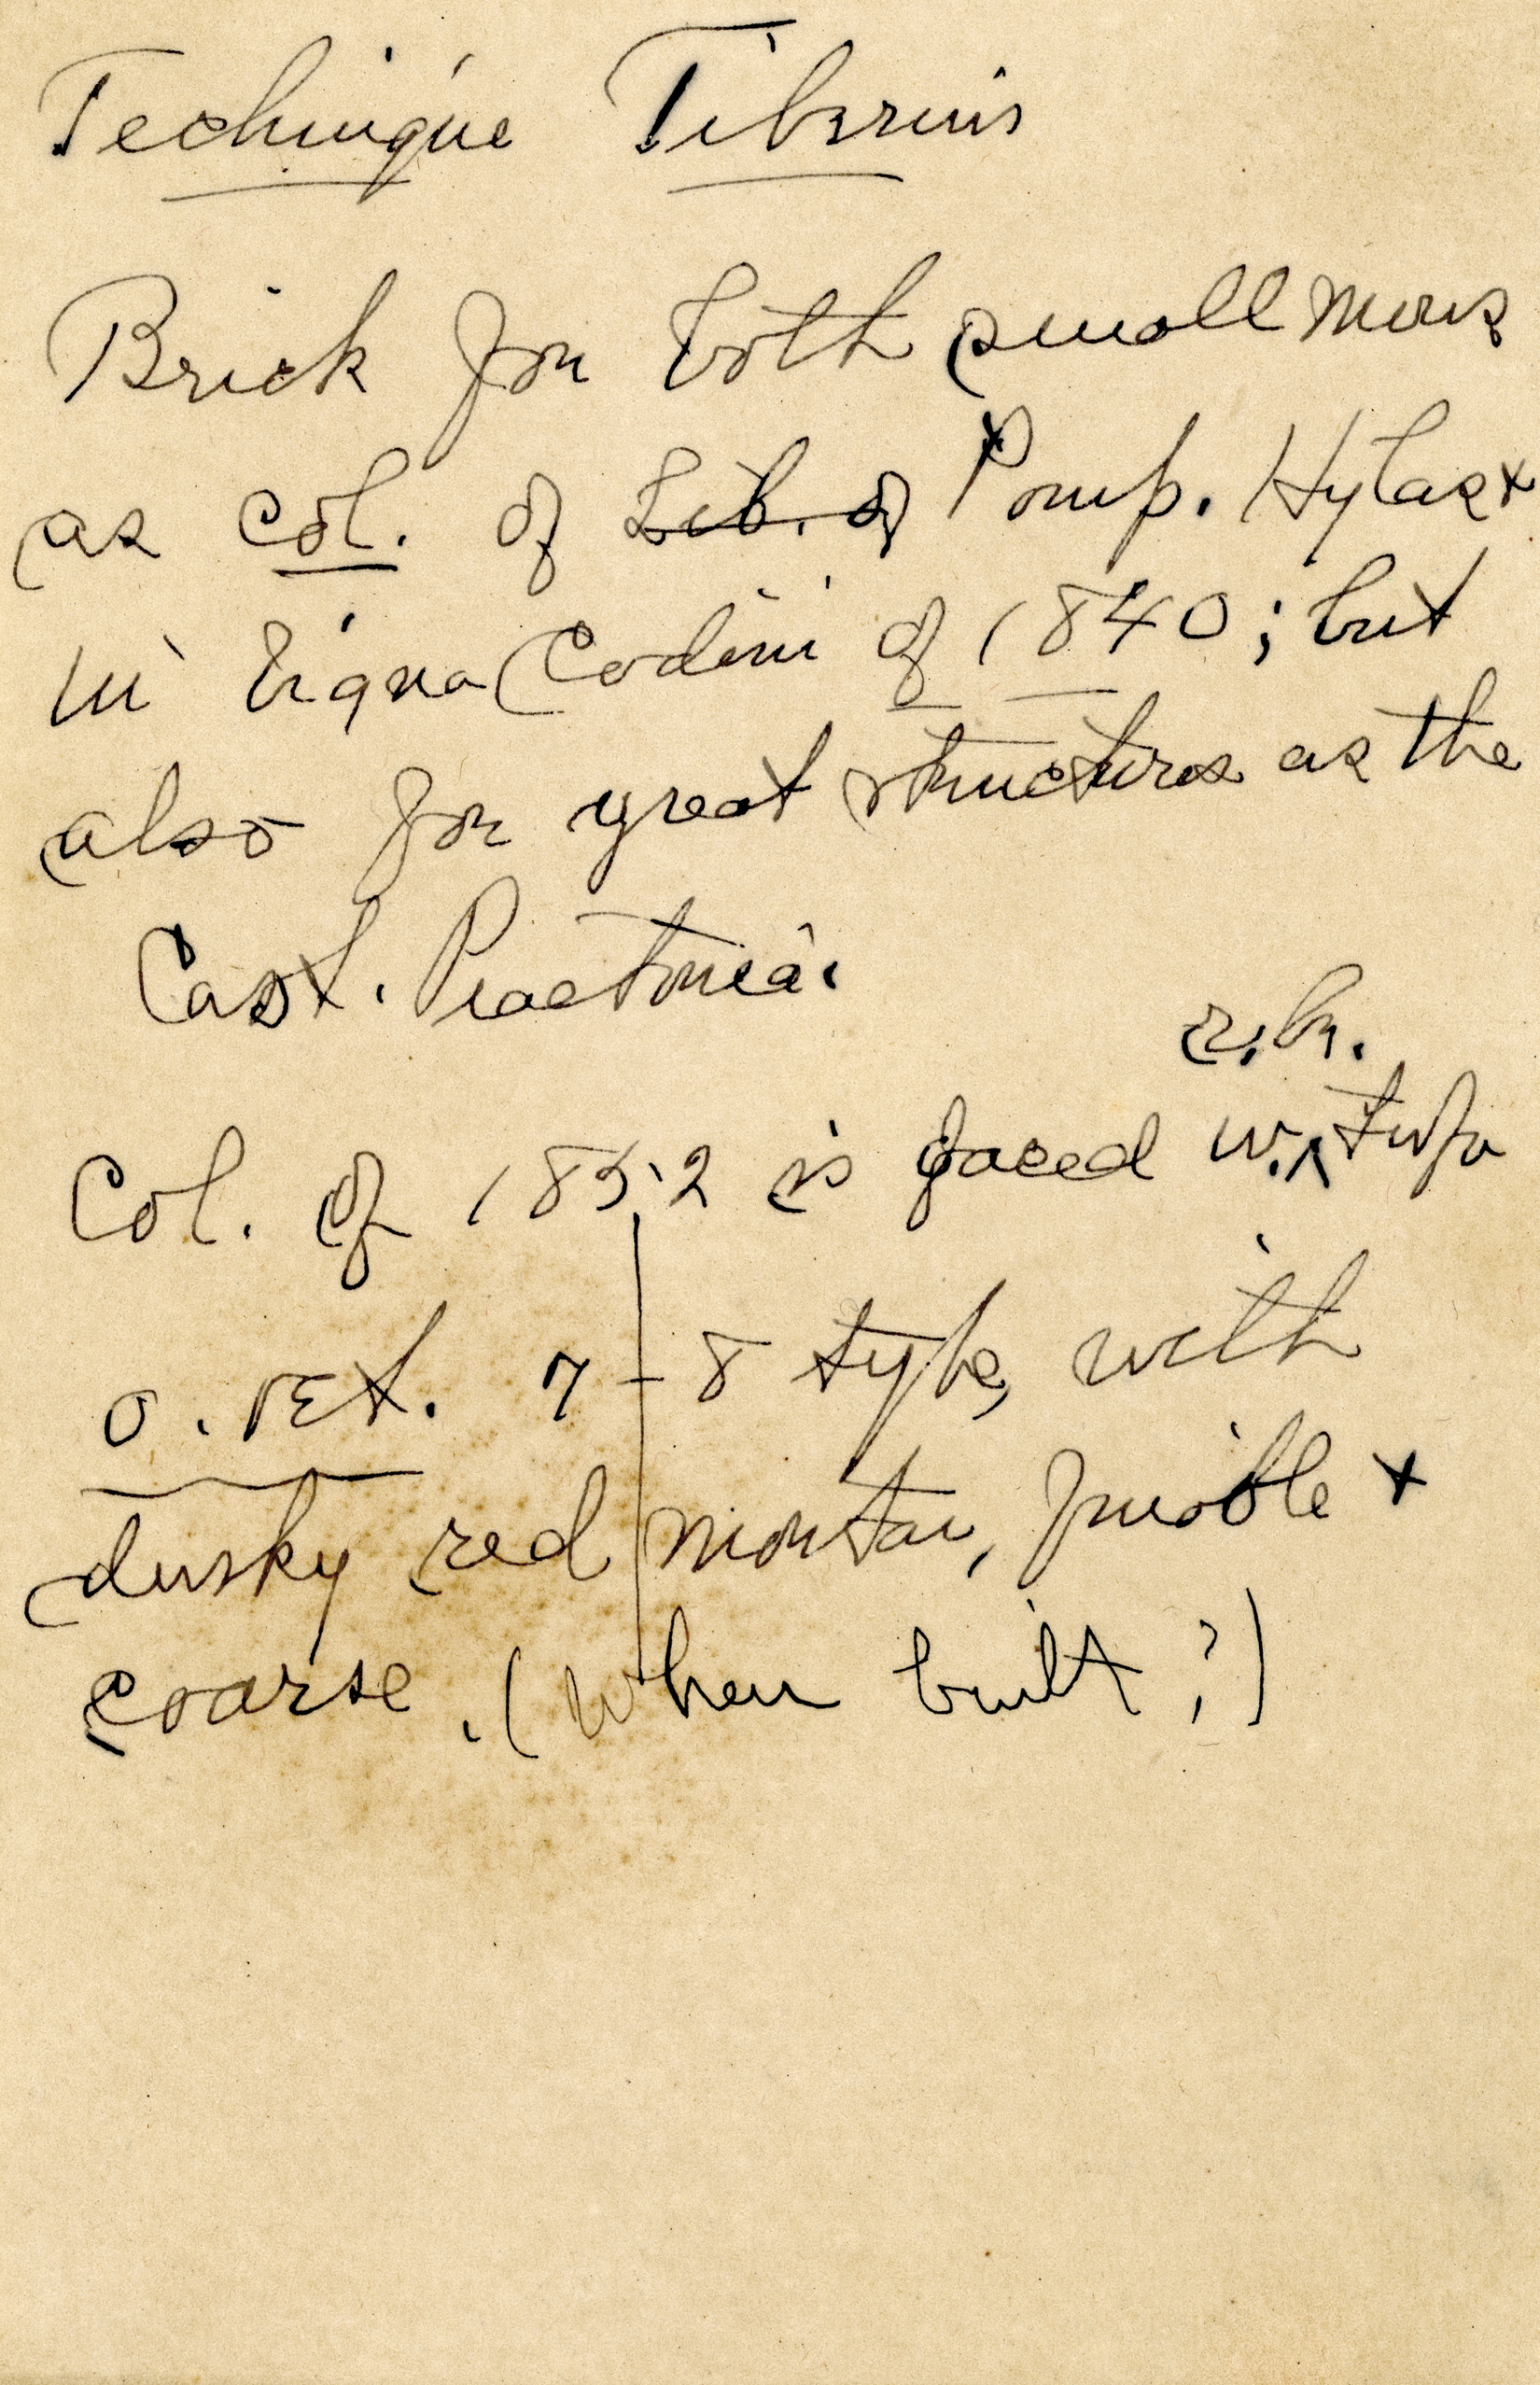 Technique Tiberius
Brick for both small mons
as col. of Lib. of Pomp. Hylas +
in Vigna Codini of 1840; but
also for great structures as the
Cast. Praetoria.
r. br.
Col. of 1852 is faced w. ^ tufa
o. ret. 7-8 type, with
dusky red mortar, friable +
coarse. (When built?)